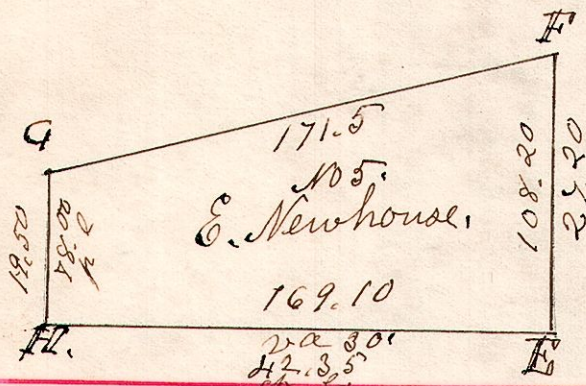 F
G
171.5
No 5.
E. Newhouse.
108.20
19.50
169.10
H.
E
va 30'
42.35